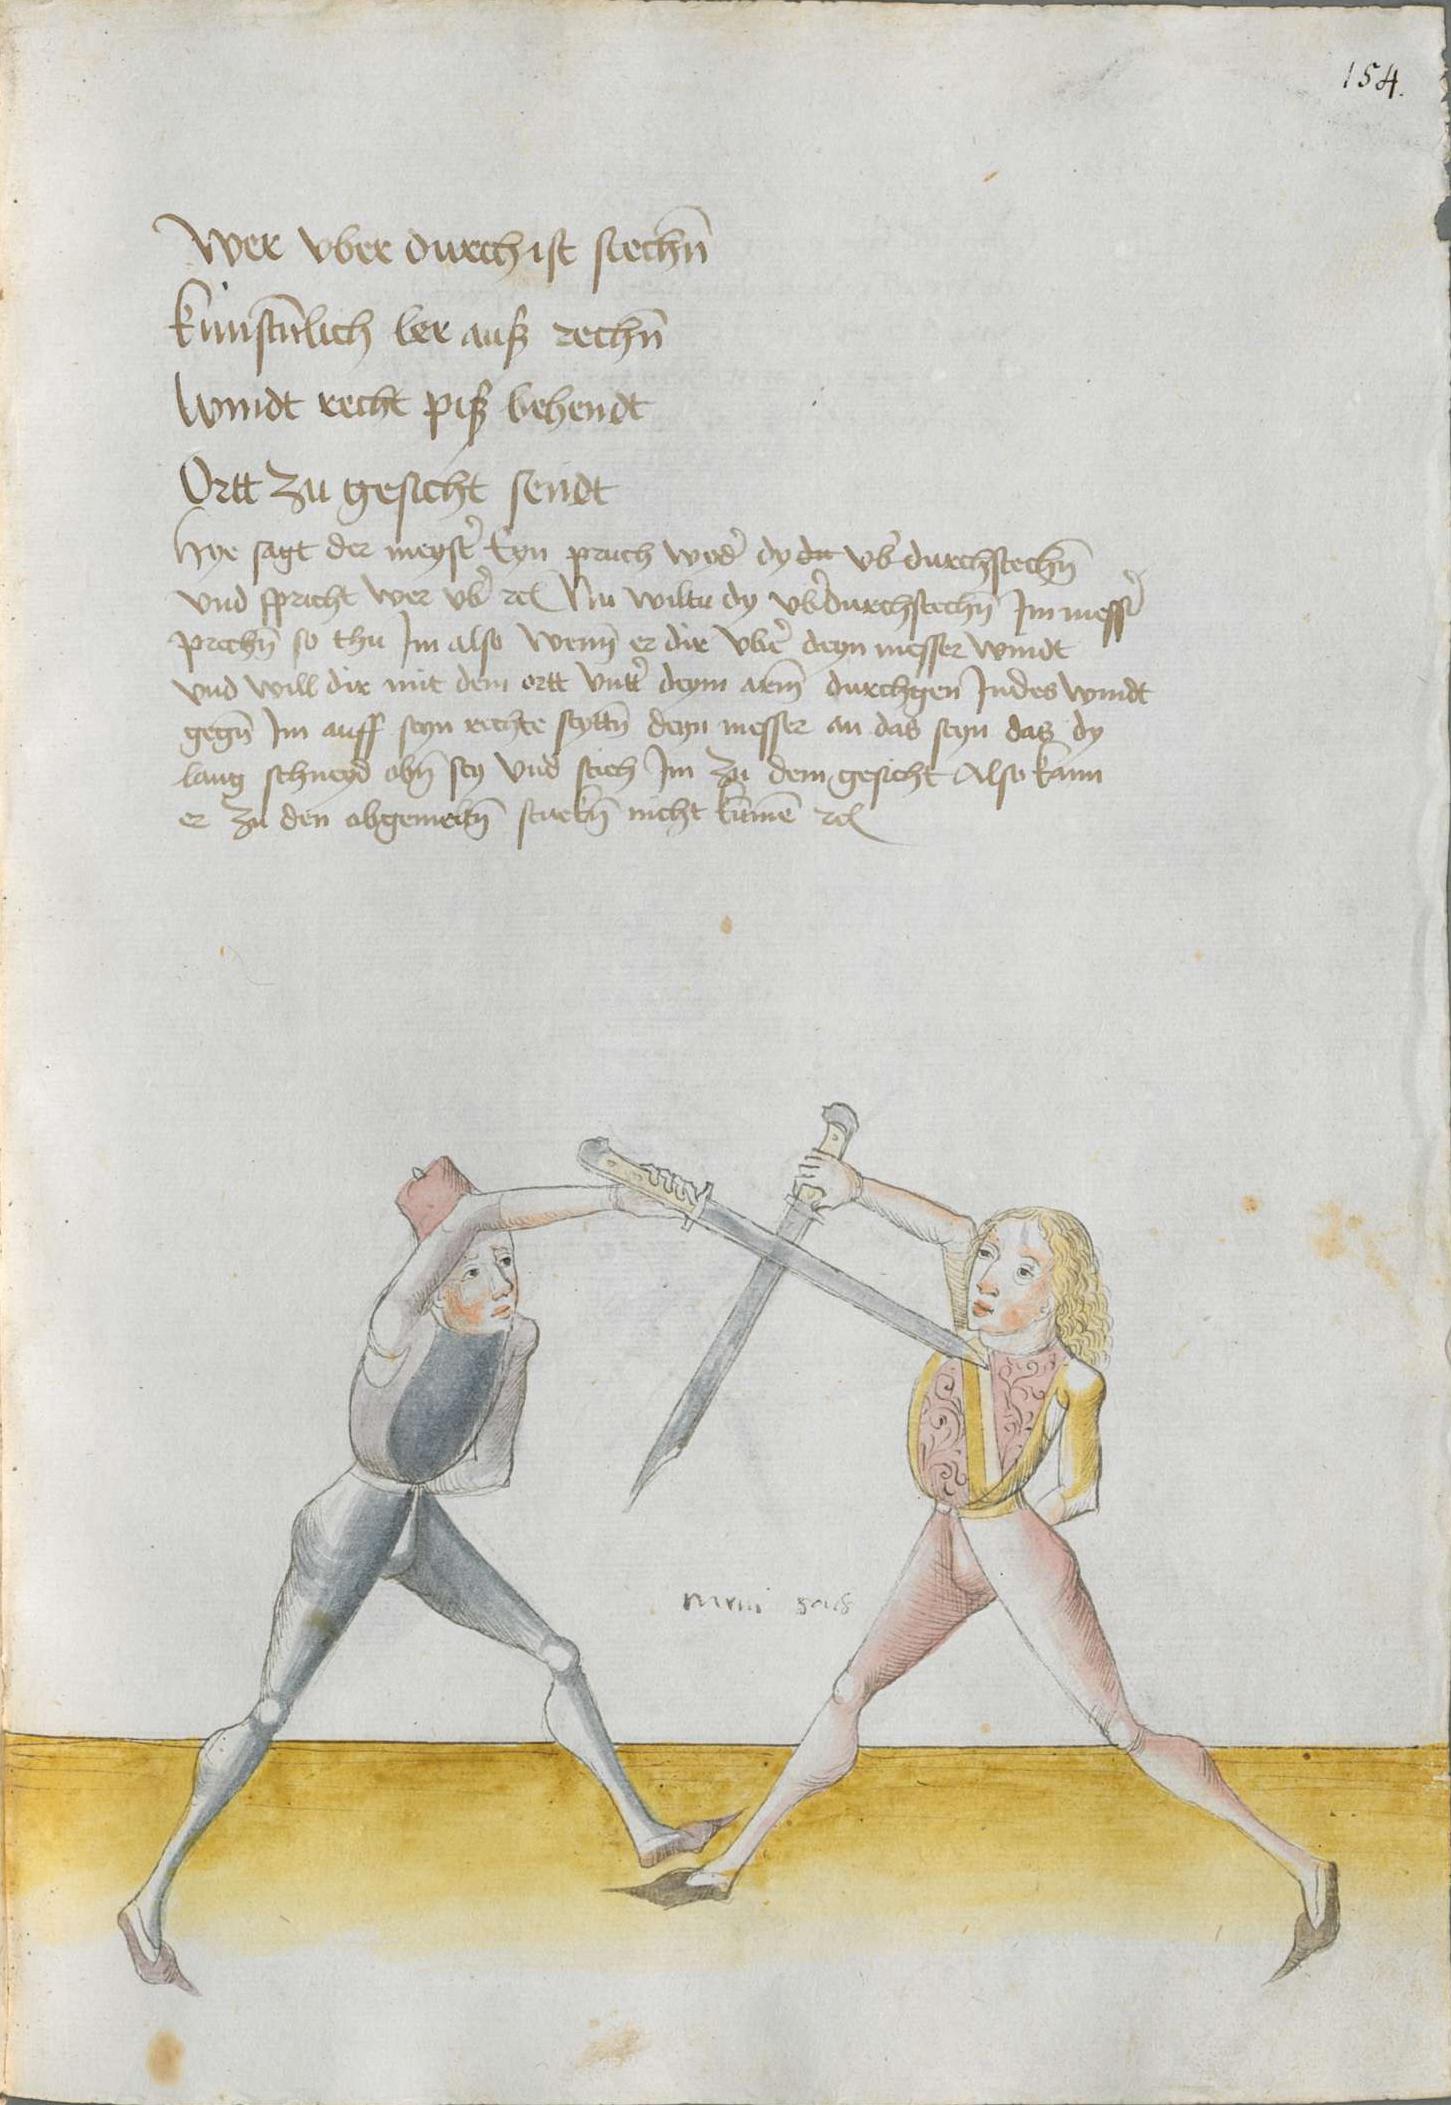 154.
Wer vber durch ist stechn̄
ku̇nstn̄lich ler auß rechn̄
Windt recht piß behendt
Ortt zu gesicht sendt
Hye sagt der meyst̄ Eyn pruch wyd̄ dy vb̄ durchstechn̄
vnd spricht wer vb̄ rcl Nu wiltu dy vb̄durchstechn̄ Im mess̄
prechn̄ so thu Im also Wenn̄ er dir vb̄e deyn messer windt
vnd will dir mit dem ortt vntt̄ deym arm̄ durchgen Indes windt
gegn̄ Im auff seyn rechte seyttn̄ deyn messer an das seyn das dy
lang schneyd obn̄ sey vnd stich Im zu dem gesicht Also kann
er zu den obgemeltn̄ stuckn̄ nicht ku̇mē rcl